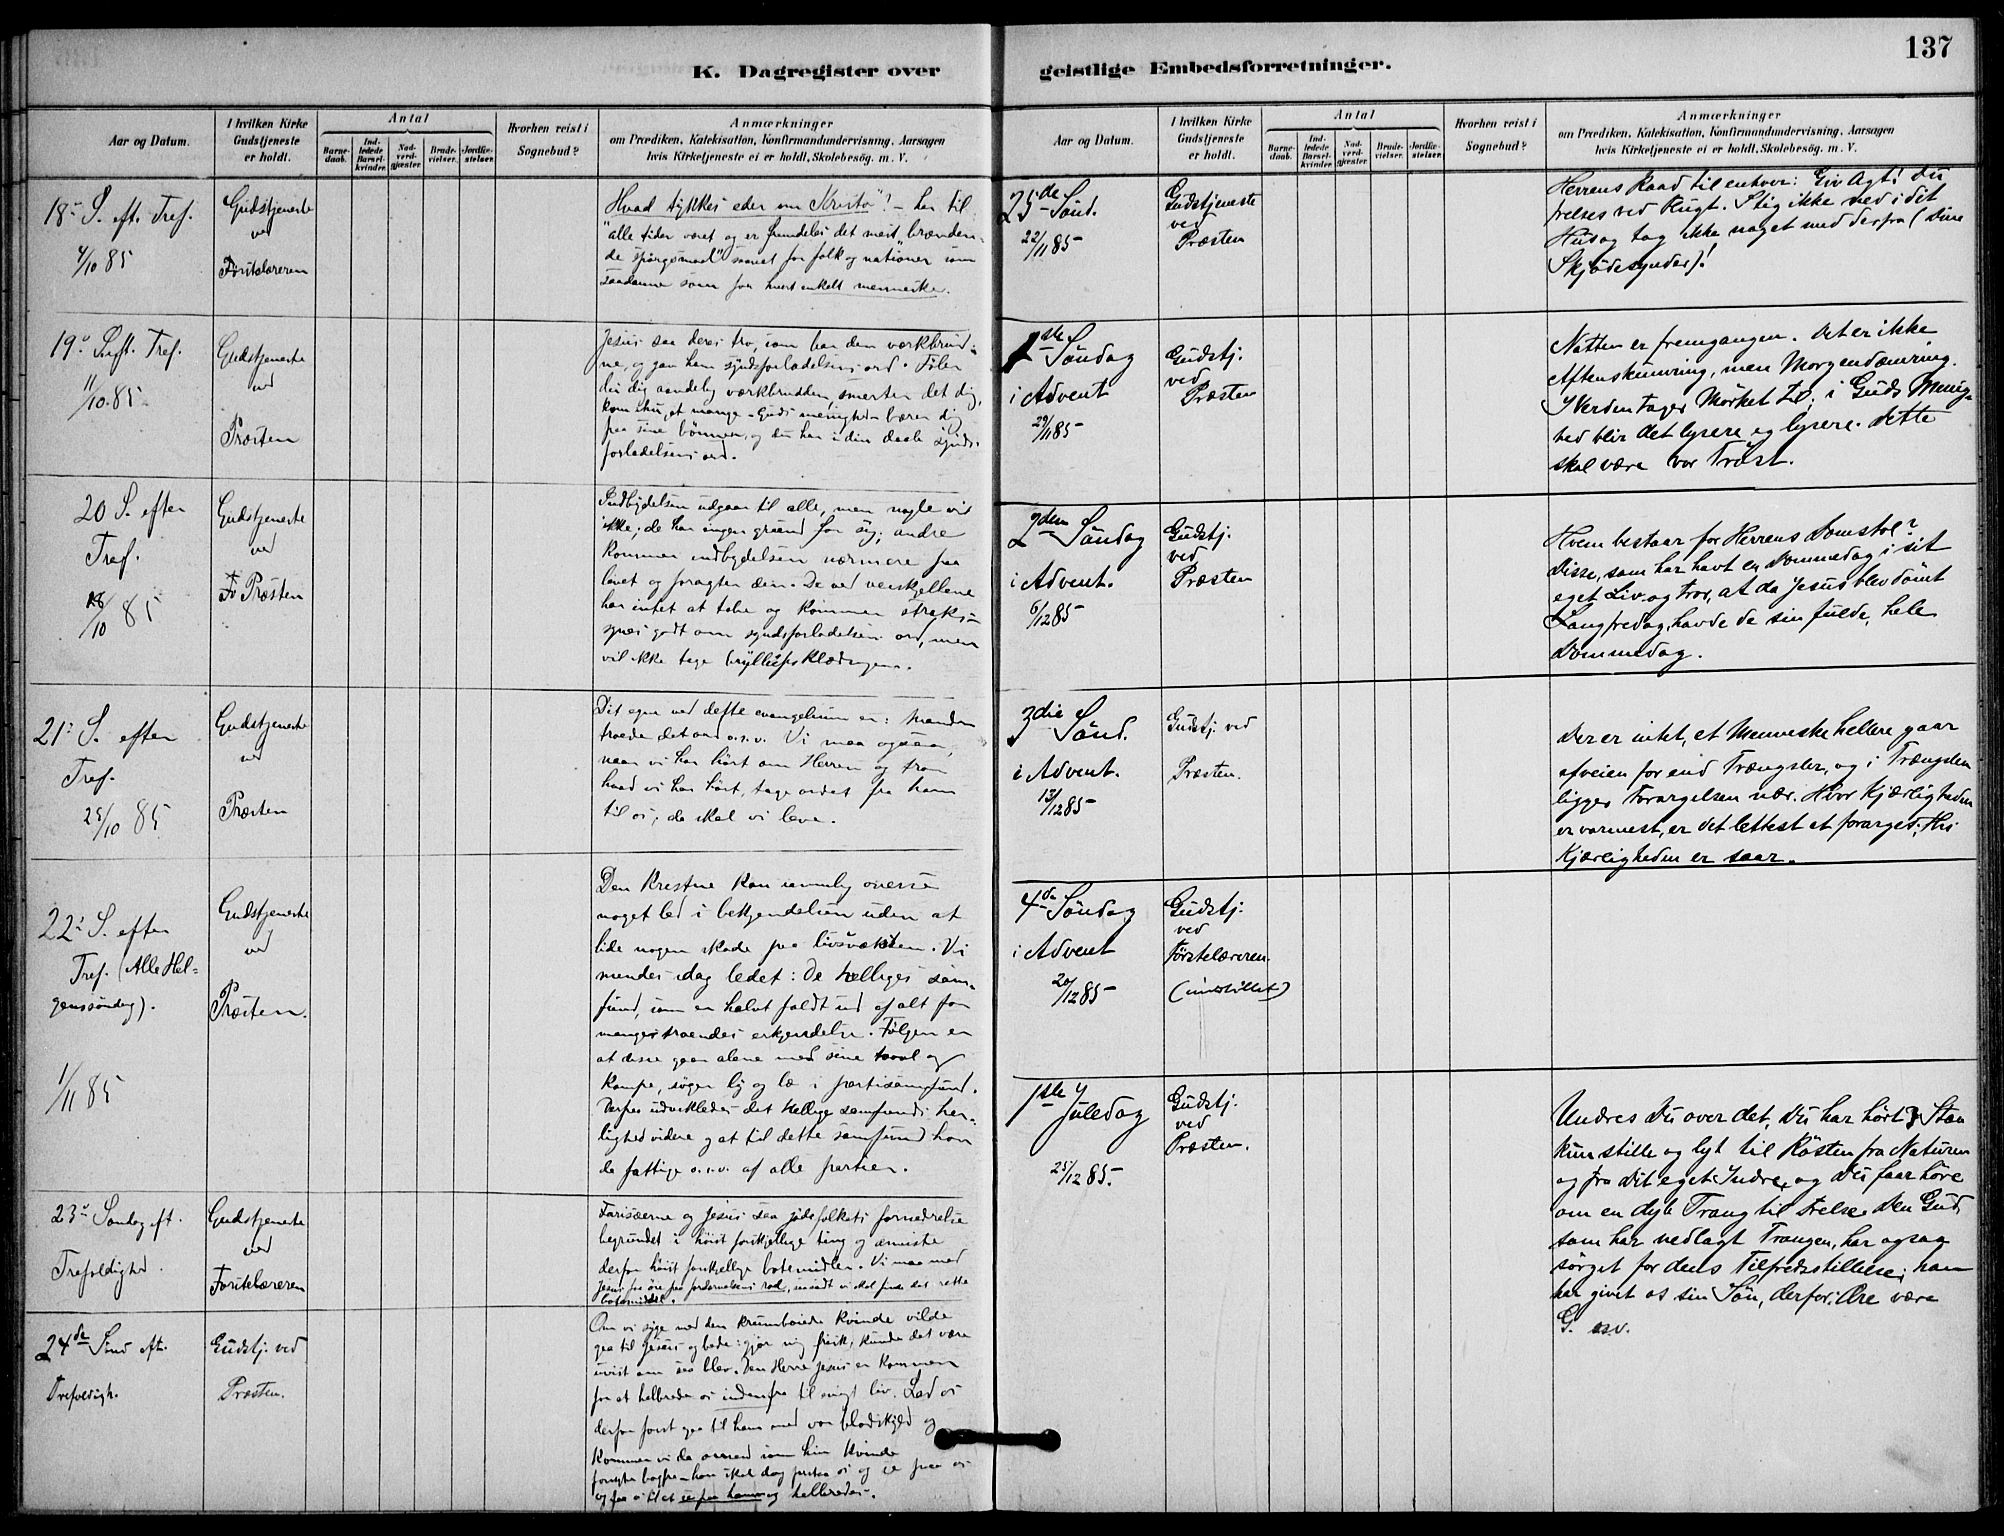 137
K. Dagregister over
geistlige Embedsforretninger.
Aar og Datum.
I hvilken Kirke
Gudstjeneste
er holdt.
Antal
Barne-
daab.
Ind-
ledede
Barsel-
kvinder.
Nad-
verd-
gjæster.
Brude-
vielser.
Jordfæ-
stelser.
Hvorhen reist i
Sognebud?
Anmærkninger
om Prædiken, Katekisation, Konfirmandundervisning, Aarsagen
hvis Kirketjeneste ei er holdt, Skolebesøg. m. V.
18de S. eft. Tref.
4/10 85
Gudstjeneste
ved
Förstelæreren
Hvad tykkes eder om Kristo"? – har til
alle tider været og er fremdeles det mest "brænden-
de spörgsmaal" saavel for folk og nationer som
saadanne som for hvert enkelt menneske.
19de S. eft. Tref.
11/10 85
Gudstjeneste
ved
Præsten
Jesus saa deres tro, som bar den værkbrud-
ne, og gav ham syndsforladelsens ord. Föler
du dig aandelig værkbrudden, smerter det dig,
kom ihu, at mange – Guds menighed – bærer dig
paa sine bönner, og du har i din daab synds-
forladelsens ord.
20 S. efter
Tref.
18/10 85
Gudstjeneste
ved
Præsten
Indbydelsen udgaar til alle, men nogle vil
ikke; de har ingen grund for sig; andre
kommer indbydelsen nærmere paa
livet og foragter den. De ved veiskjellene
har intet at tabe og kommer straks –
synes godt om syndsforladelsens ord, men
vil ikke tage bryllupsklædningen.
21de S. efter
Tref.
25/10 85
Gudstjeneste
ved
Præsten
Dit eget ved dette evangelium er: Manden
troede det ord o.s.v. Vi maa ogsaa,
naar vi har hört om Herren og tror
hvad vi har hört, tage ordet fra ham
til os; da skal vi leve.
22de S. efter
Tref. (Alle Hel-
genssöndag).
1/11 85
Gudstjeneste
ved
Præsten.
Den kristne kan umulig overse
noget led i bekjendelsen uden at
lide nogen skade paa livsvæksten. Vi
mindes idag ledet: De helliges sam-
fund, som er halvt faldt ud af alt for
manges troendes erkjendelse. Fölgen er
at disse gaar alene med sine taal og
kampe, söger ly og læ i partisamfund.
Derfra udvikledes det hellige samfunds her-
lighed videre og at til dette samfund hörer
de fattige o.s.v. af alle partier.
23de Söndag eft.
Trefoldighed.
Gudstjeneste
ved
Förstelæreren
Farisæerne og Jesus saa jödefolkets fornedrelse
begrundet i höist forskjellige ting og önskede
derfor höist forskjellige botemidler. Vi maa med
Jesus faa öie paa fordærvelsens rod, forsaavidt vi skal finde det rette
botemiddel.
24de Sönd eft.
Trefoldigh.
Gudstj. ved
Præsten.
Om vi syge med den krumböiede kvinde vilde
gaa til Jesus og bede: gjör mig frisk, kunde det være
uvist om saa blev. Den Herre Jesus er kommen
for at helbrede os indenfra til evigt liv. Lad os
derfor först gaa til ham med vor blodskyld og
kommer vi da ormed som hin kvinde
forsigtig bagfra – han skal dog forstaa os og se paa os
og faa os til at se paa ham og helbredes.
25de Sönd.
22/11 85
Gudstjeneste
ved
Præsten
Herrens Raad til enhver: Giv Agt! Du
frelses ved Flugt. Stig ikke ned i dit
Hus og tag ikke noget med derfra (Dine
Skjödesynder)!
1ste Söndag
i Advent
29/11 85
Gudstj.
ved
Præsten
Natten er fremgangen. Det er ikke
Aftenskumring, men Morgendæmring.
I Verden tager Mörket til; i Guds Menig-
hed blir det lysere og lysere. Dette
skal være vor Tröst.
2den Söndag
i Advent.
6/12 85
Gudstj.
ved
Præsten
Hvem bestaar for Herrens Domstol?
Disse, som har havt en Dommedag i sit
eget Liv og tror, at da Jesus blev dömt
Langfredag, havde de sin fulde, hele
Dommedag.
3die Sönd.
i Advent.
13/12 85
Gudstj. ved
Præsten.
Der er intet, et Menneske hellere gaar
afveien for end Trængsler, og i Trængslen
ligger Forargelsen nær. Hvor Kjærligheden
er varmest, er det lettest at forarges; thi
Kjærligheden er saar.
4de Söndag
i Advent
20/12 85
Gudstj.
ved
Förstelæreren.
(indstillet)
1ste Juledag
25/12 85.
Gudstj.
ved
Præsten.
Undres Du over det, Du har hört? Staa
kun stille og lyt til Rösten fra Naturen
og fra dit eget Indre, og Du faar höre
om en dyb Trang til Frelse. Den Gud
som har nedlagt Trangen, har ogsaa
sörget for dens Tilfredsstillelse; han
har givet os sin Sön, derfor: Ære være
G. osv.